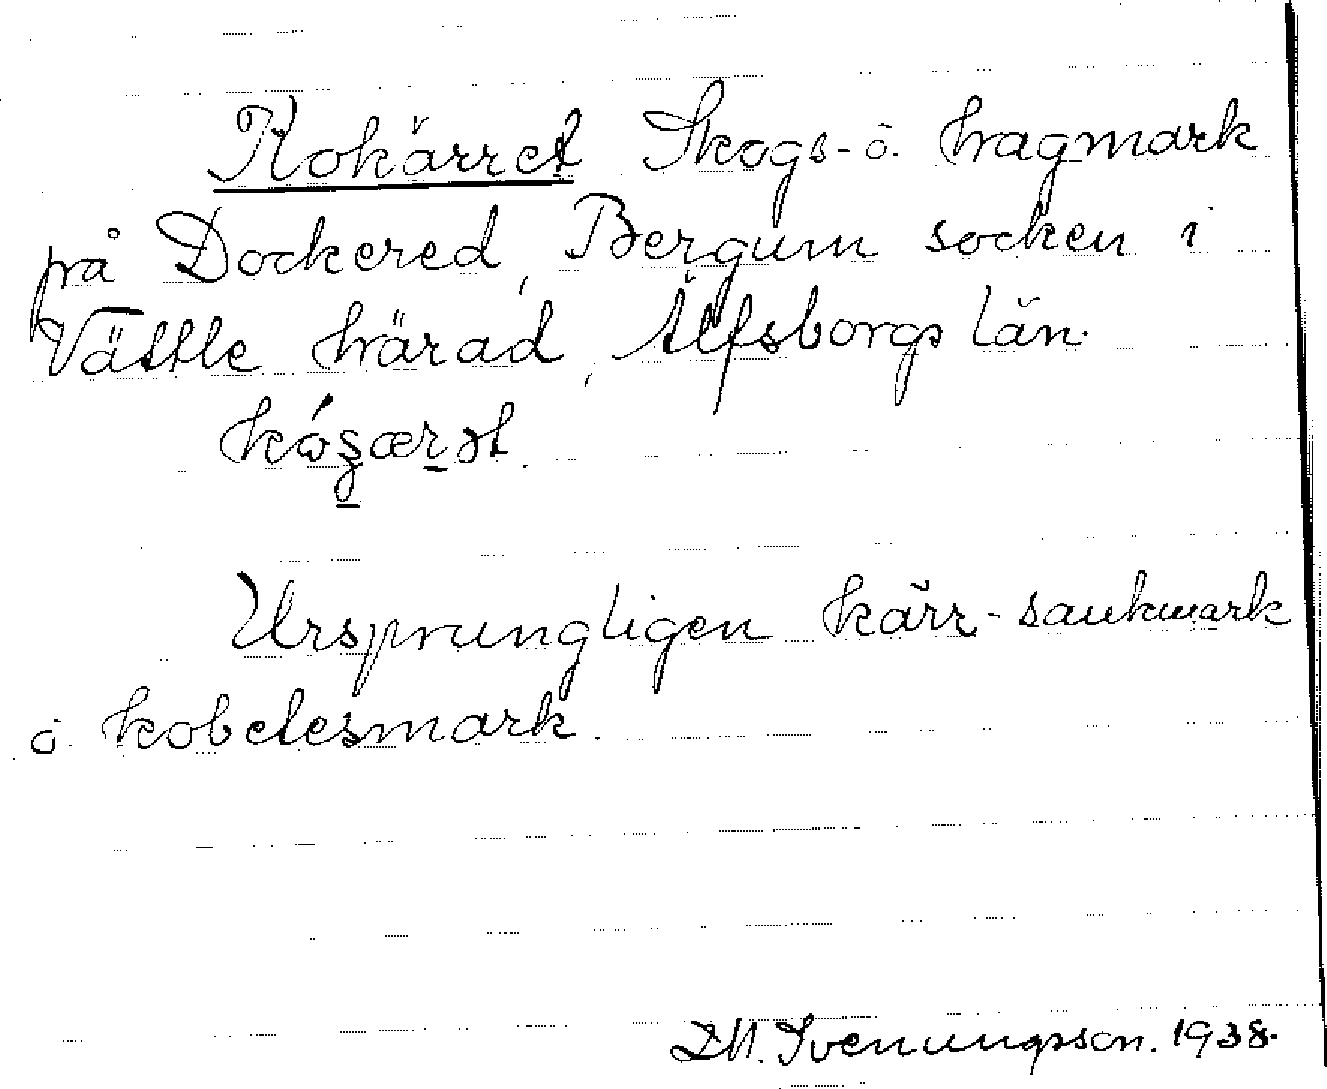 Kokärret Skogs- o. hagmark
på Dockered, Bergum socken i
Vättle härad, Älfsborgs län.
Ursprungligen kärr- sankmark
o. kobetesmark.
D.M. Svenungsson. 1938.